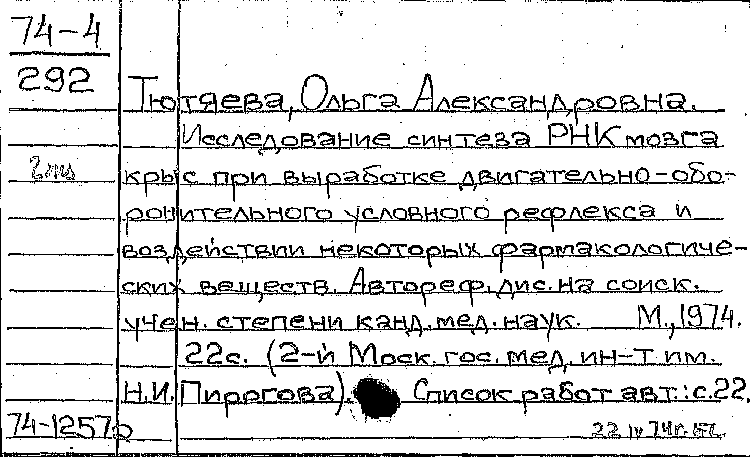 74-4
292
Тютяева, Ольга Александровна.
Исследование синтеза РНК мозга
крыс при выработке двигательно-обо-
ронительного условного рефлекса и
воздействии некоторых фармакологиче-
ских веществ. Автореф. дис. на соиск.
учен. степени канд. мед. наук. М., 1974.
22с. (2-й Моск. гос. мед. ин-т им.
Н.И. Пирогова). Список работ авт.: с. 22.
74-1257
22 IV 74г.